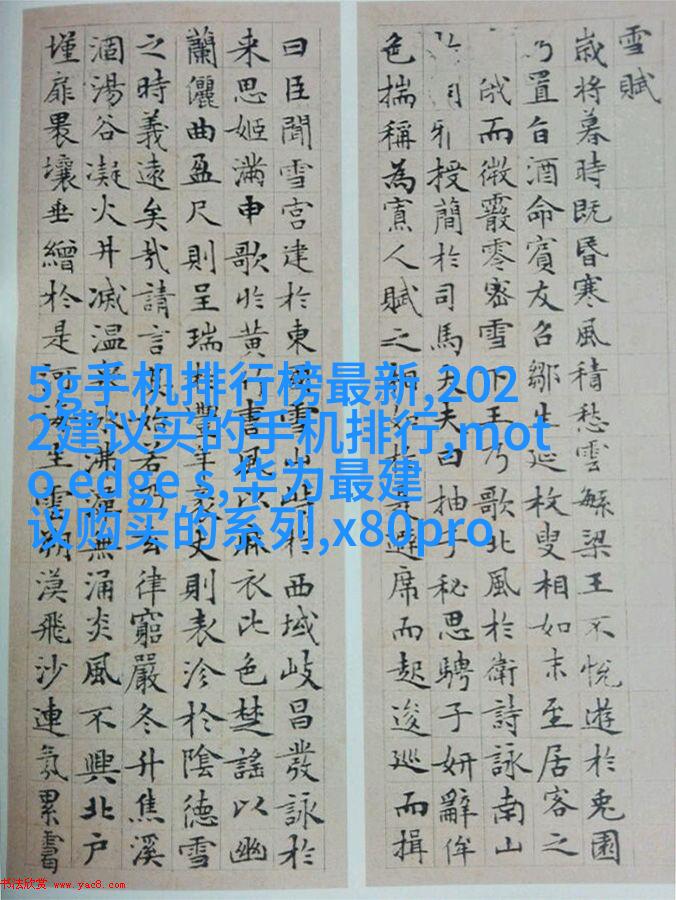 雪賦
歲將暮時既昏寒風積愁雲繁梁王不悅遊於兎園
乃置旨酒命賓友召鄒生延枚叟相如末至居客之
俄而微霰零密雪下王乃歌北風於衛詩詠南山
雅授簡於司馬大夫曰抽子秘思騁子妍辭侔
色揣稱為寡人賦之相如於是避席而起逡巡而揖
曰臣聞雪宮建於東國雪山峙於西域岐昌發詠於
来思姬滿申歌於黃竹曹風以麻衣比色楚謠以幽
蘭儷曲盈尺則呈瑞於豐年袤丈則表沴於陰德雪
之時義遠矣哉請言其始若乃玄律窮嚴冬升焦溪
涸湯谷凝火井滅温泉冰沸潭無涌炎風不興北戶
墐扉壤垂繒於是河海生雲朔漠飛沙連氛累靄
5g手机排行榜最新,202
2建议买的手机排行,mot
o edge s,华为最建
议购买的系列,x80pro
书法欣赏 www.yac8.com